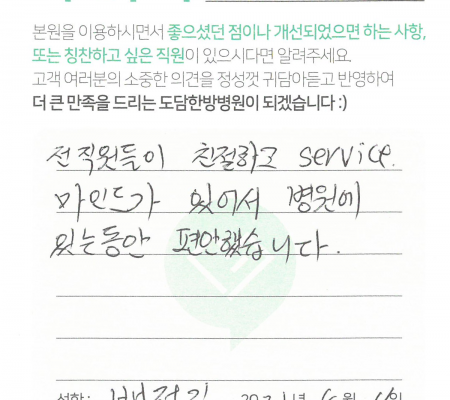 본원을 이용하시면서 좋으셨던 점이나 개선되었으면 하는 사항,
또는 칭찬하고 싶은 직원이 있으시다면 알려주세요.
고객 여러분의 소중한 의견을 정성껏 귀담아듣고 반영하여
더 큰 만족을 드리는 도담한방병원이 되겠습니다 :)
전 직원들이 친절하고 service.
마인드가 있어서 병원에
있는동안 편안했습니다.
성함: